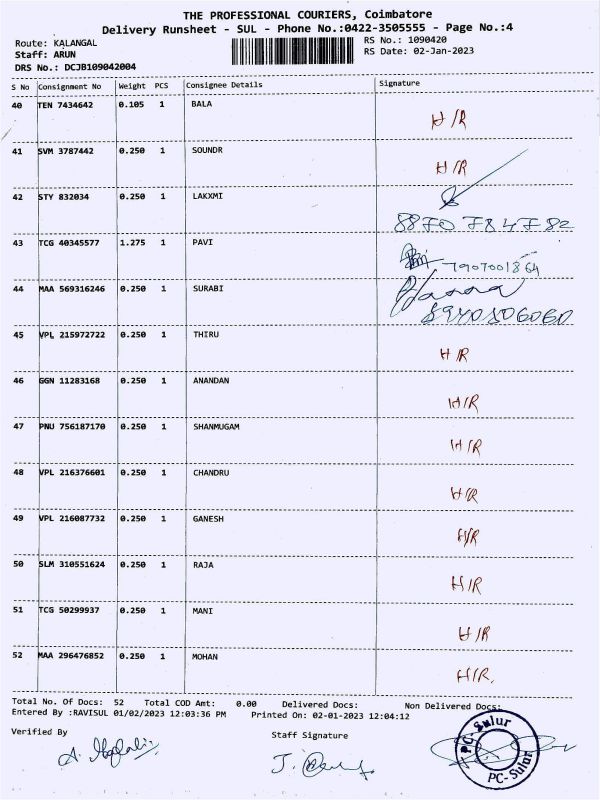 THE PROFESSIONAL COURIERS, Coimbatore
Delivery Runsheet - SUL - Phone No.:0422-3505555 - Page No.:4
Route: KALANGAL
RS No.: 1090420
Staff: ARUN
RS Date: 02-Jan-2023
DRS No.: DCJB109042004
S No Consignment No Weight PCS Consignee Details Signature
40 TEN 7434642 0.105 1 BALA H/R
41 SVM 3787442 0.250 1 SOUNDR H/R
42 STY 832034 0.250 1 LAKXMI
8870 784782
43 TCG 40345577 1.275 1 PAVI 7907001864
44 MAA 569316246 0.250 1 SURABI
8940806060
45 VPL 215972722 0.250 1 THIRU H/R
46 GGN 11283168 0.250 1 ANANDAN H/R
47 PNU 756187170 0.250 1 SHANMUGAM H/R
48 VPL 216376601 0.250 1 CHANDRU H/R
49 VPL 216087732 0.250 1 GANESH H/R
50 SLM 310551624 0.250 1 RAJA H/R
51 TCG 50299937 0.250 1 MANI H/R
52 MAA 296476852 0.250 1 MOHAN H/R.
Total No. Of Docs: 52 Total COD Amt: 0.00 Delivered Docs: Non Delivered Docs:
Entered By :RAVISUL 01/02/2023 12:03:36 PM Printed On: 02-01-2023 12:04:12
Verified By
Staff Signature
PC-Sulur
PC-Sulur